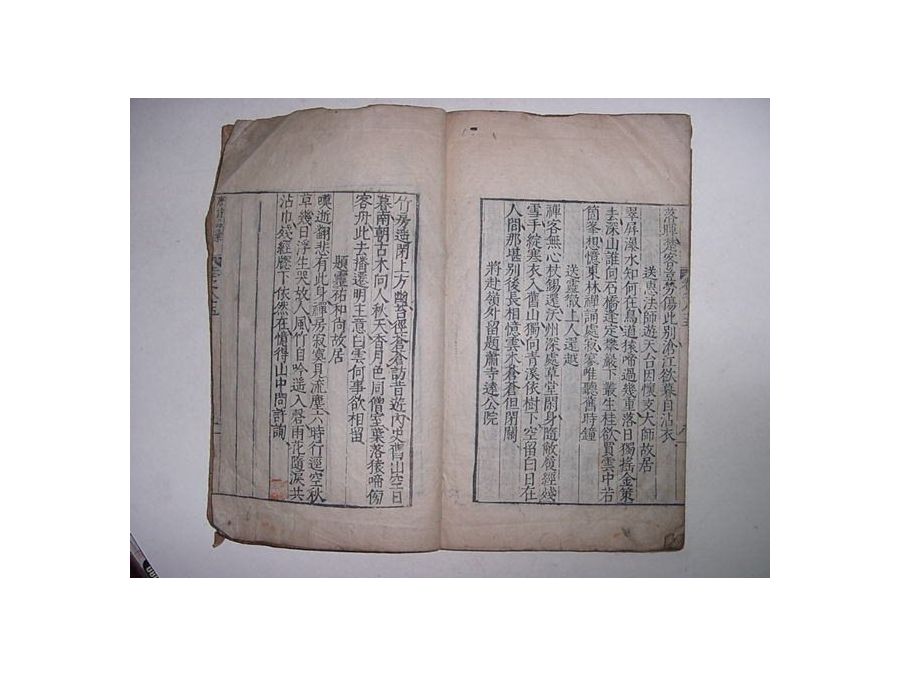 落暉楚客豈勞傷此別滄江欲暮自沾衣
送惠法師遊天台因懷文大師故居
翠屏瀑水知何在鳥道猿啼過幾重落日獨搖金策
去深山誰向石橋逢定攀巖下叢生桂欲買雲中若
箇峯想憶東林禪誦處寂寥唯聽舊時鐘
送靈徹上人還越
禪客無心杖錫還沃州深處草堂閑身隨敝屨經殘
雪手綻寒衣入舊山獨向青溪依樹下空留白日在
人間那堪別後長相憶雲木蒼蒼但閉關
將赴嶺外留題蕭寺遠公院
竹房遥閉上方幽苔徑蒼蒼訪昔遊內史舊山空日
暮南朝古木向人秋天香月色同僧室葉落猿啼傍
客舟此去播遷明主意白雲何事欲相留
題靈祐和尚故居
嘆逝翻悲有此身禪房寂寞見流塵六時行逕空秋
草幾日浮生哭故人風竹自吟遥入磬雨花隨淚共
沾巾殘經窻下依然在憶得山中問許詢